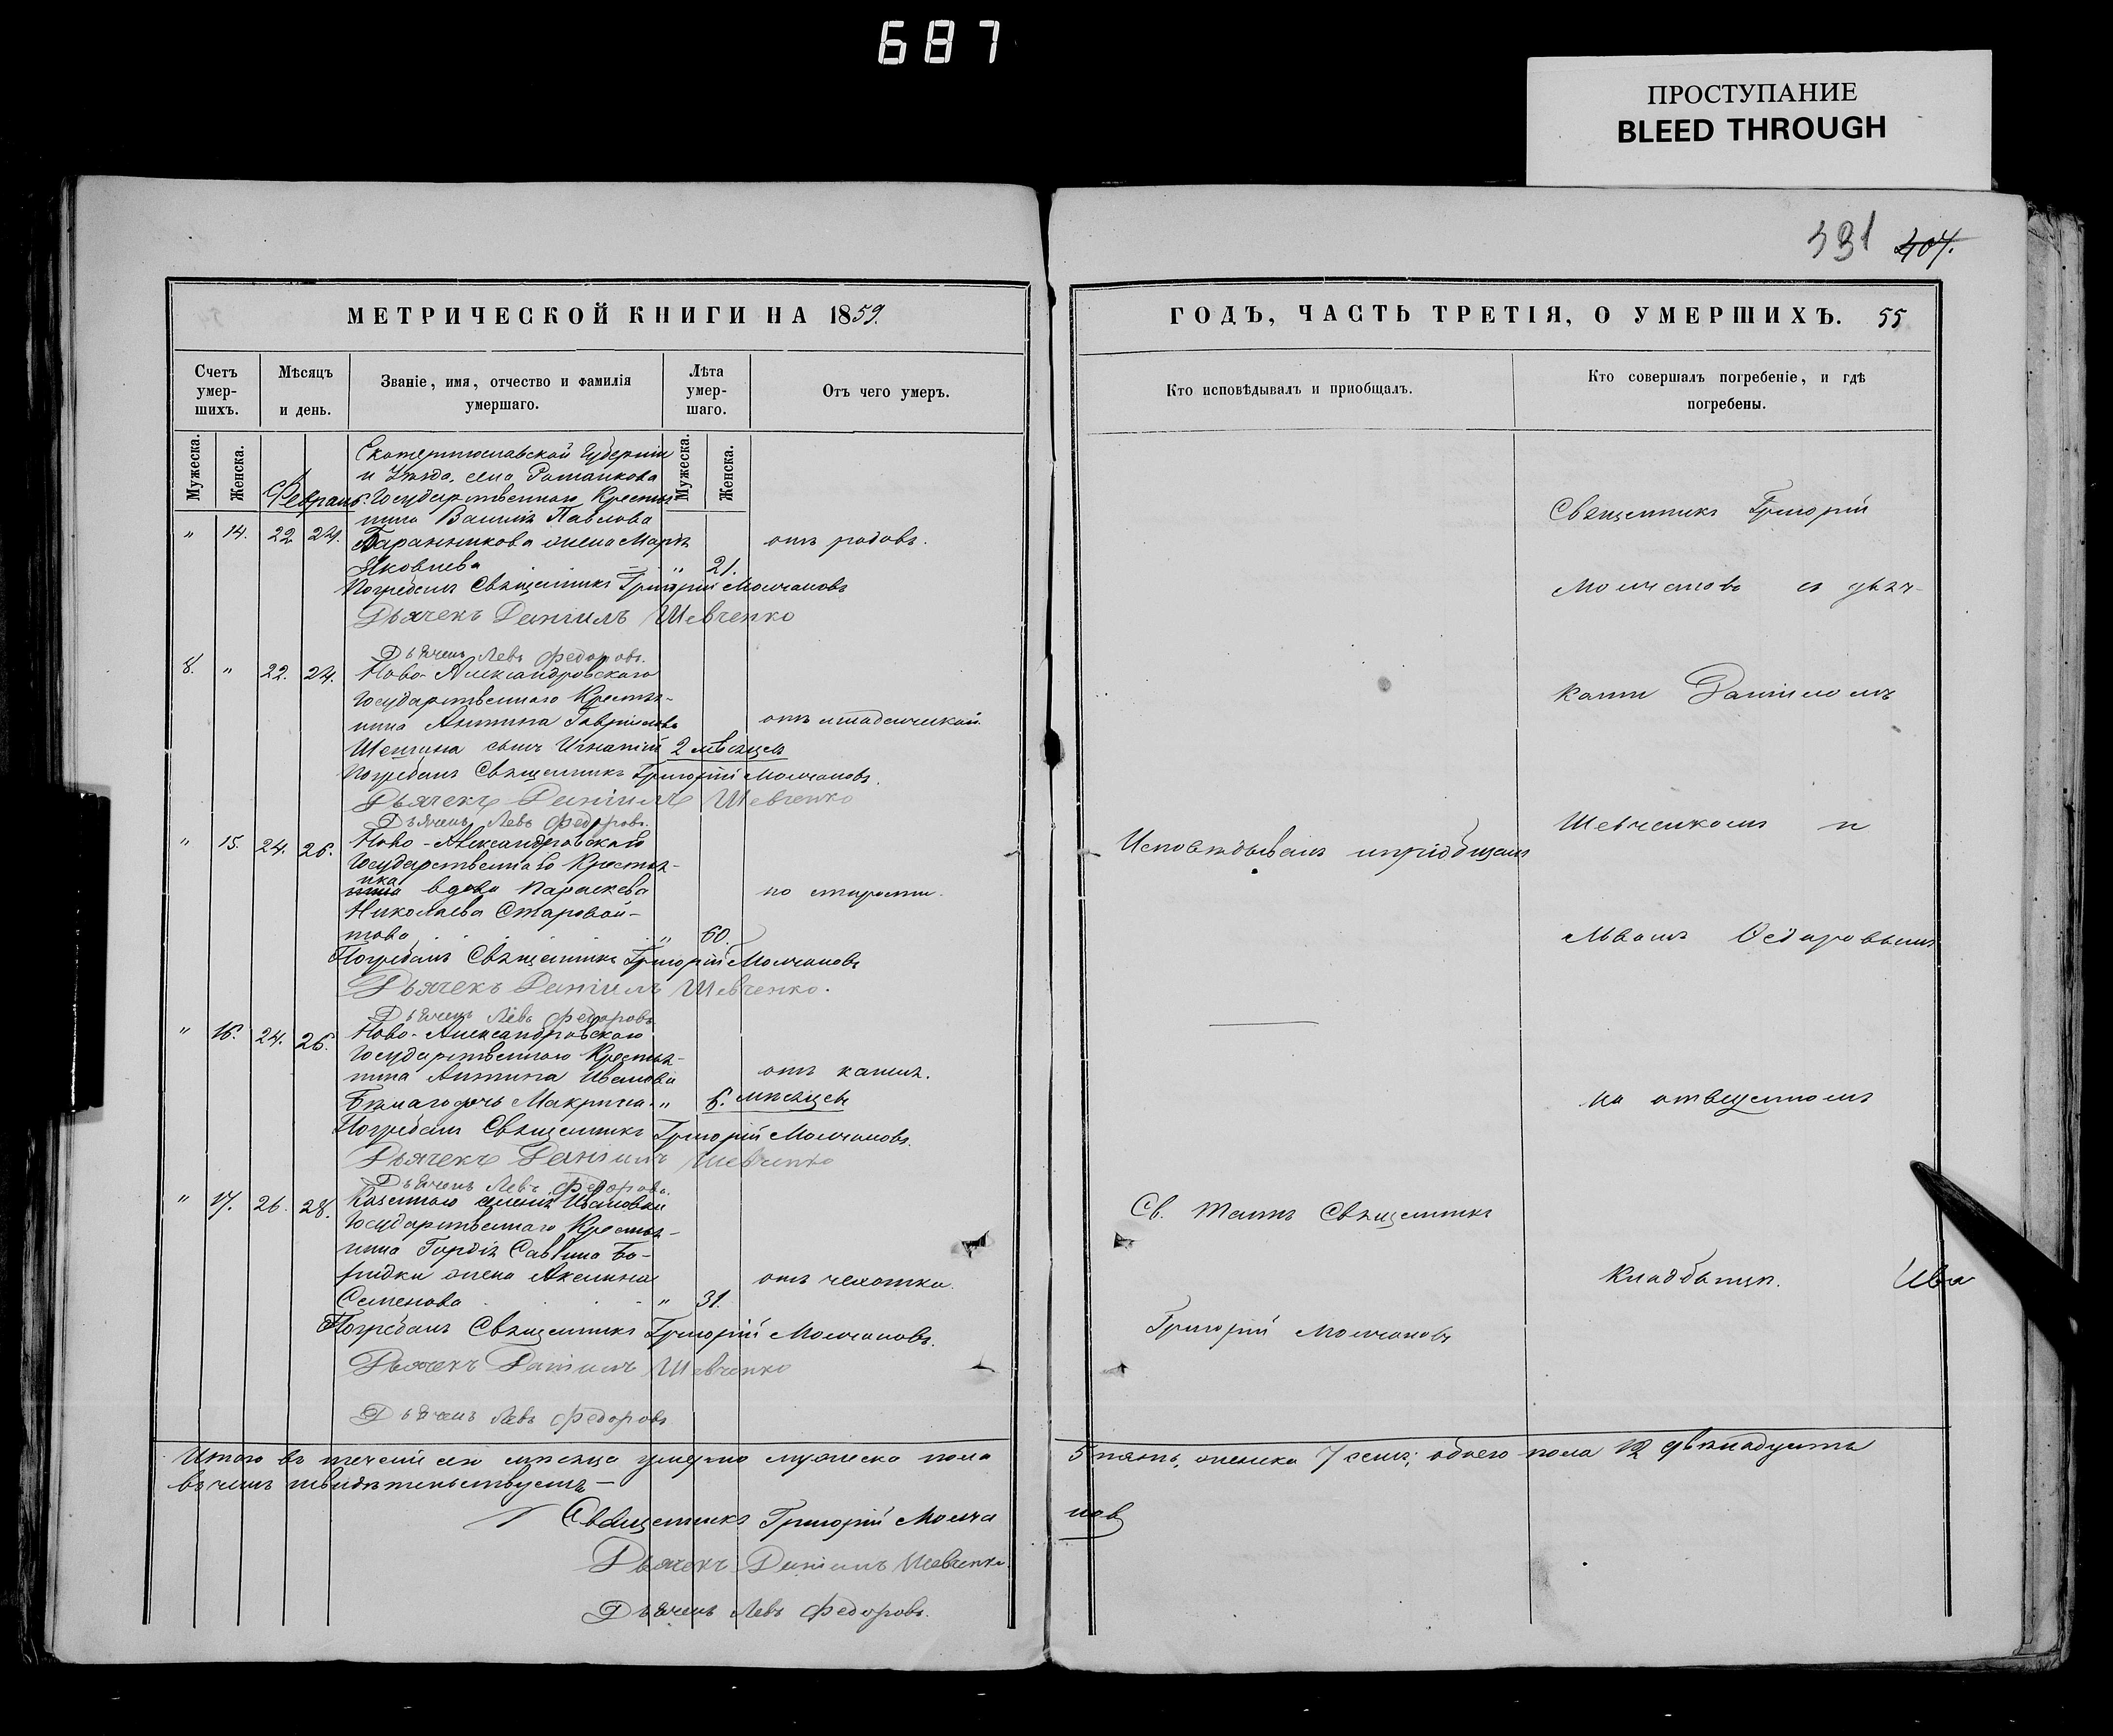 687
ПРОСТУПАНИЕ
BLEED THROUGH
331 407.
МЕТРИЧЕСКОЙ КНИГИ НА 1859.
Счетъ умер-шихъ.
Мѣсяцъ и день.
Званіе, имя, отчество и фамилія умершаго.
Лѣта умер-шаго.
Отъ чего умеръ.
Мужеска.
Женска.
Мужеска.
Женска.
Февраль
Екатеринославской Губерніи
и Уѣзда, села Романкова
Государственнаго Крестья-
нина Василія Павлова
" 14. 22 24. Баранникова жена Марія отъ родовъ.
Яковлева " 21.
Погребалъ Священникъ Григорій Молчановъ
Дьячекъ Даніилъ Шевченко
Дьячекъ Левъ Федоровъ.
8. " 22. 24. Ново-Александровскаго
Государственнаго Крестья-
нина Антипа Гаврилова отъ младенческой.
сынъ Игнатій 2 мѣсяцев
Погребалъ Священникъ Григорій Молчановъ.
Дьячекъ Даніилъ Шевченко
Дьячекъ Левъ Федоровъ.
" 15. 24. 26. Ново-Александровскаго
Государственнаго Крестья-
нка вдова Параскева по старости.
Николаева Старовой-
това " 60.
Погребалъ Священникъ Григорій Молчановъ
Дьячекъ Даніилъ Шевченко.
Дьячекъ Левъ Федоровъ
" 16. 24. 26. Ново-Александровскаго
Государственнаго Крестья-
нина Антипа Иванова отъ кашля.
дочь Макрина " 6. мѣсяцевъ
Погребалъ Священникъ Григорій Молчановъ.
Дьячекъ Даніилъ Шевченко
Дьячекъ Левъ Федоровъ.
" 17. 26. 28. Казеннаго селенія Ивановки
Государственнаго Крестья-
нина Гордія Саввина Бо-
жена Акилина отъ чахотки.
Семенова " 31.
Погребалъ Священникъ Григорій Молчановъ.
Дьячекъ Даніилъ Шевченко
Дьячекъ Левъ Федоровъ
Итого въ теченіи сего мѣсяца умерло мужеска пола
въ чемъ свидѣтельствуемъ
Священникъ Григорій Молча
Дьячекъ Даніилъ Шевченко
Дьячекъ Левъ Федоровъ.
ГОДЪ, ЧАСТЬ ТРЕТІЯ, О УМЕРШИХЪ. 55
Кто исповѣдывалъ и приобщалъ.
Кто совершалъ погребеніе, и гдѣ погребены.
Священникъ Григорій
Молчановъ съ дьяч-
комъ Даніиломъ
Шевченкомъ и
Исповѣдывалъ и пріобщалъ
Львомъ Ѳедоровымъ
на отведенномъ
Св. Таинъ Священникъ
Кладбищѣ. Ива
Григорій Молчановъ
5 пять, женска 7 семь; обоего пола 12 двѣнадцать
нов